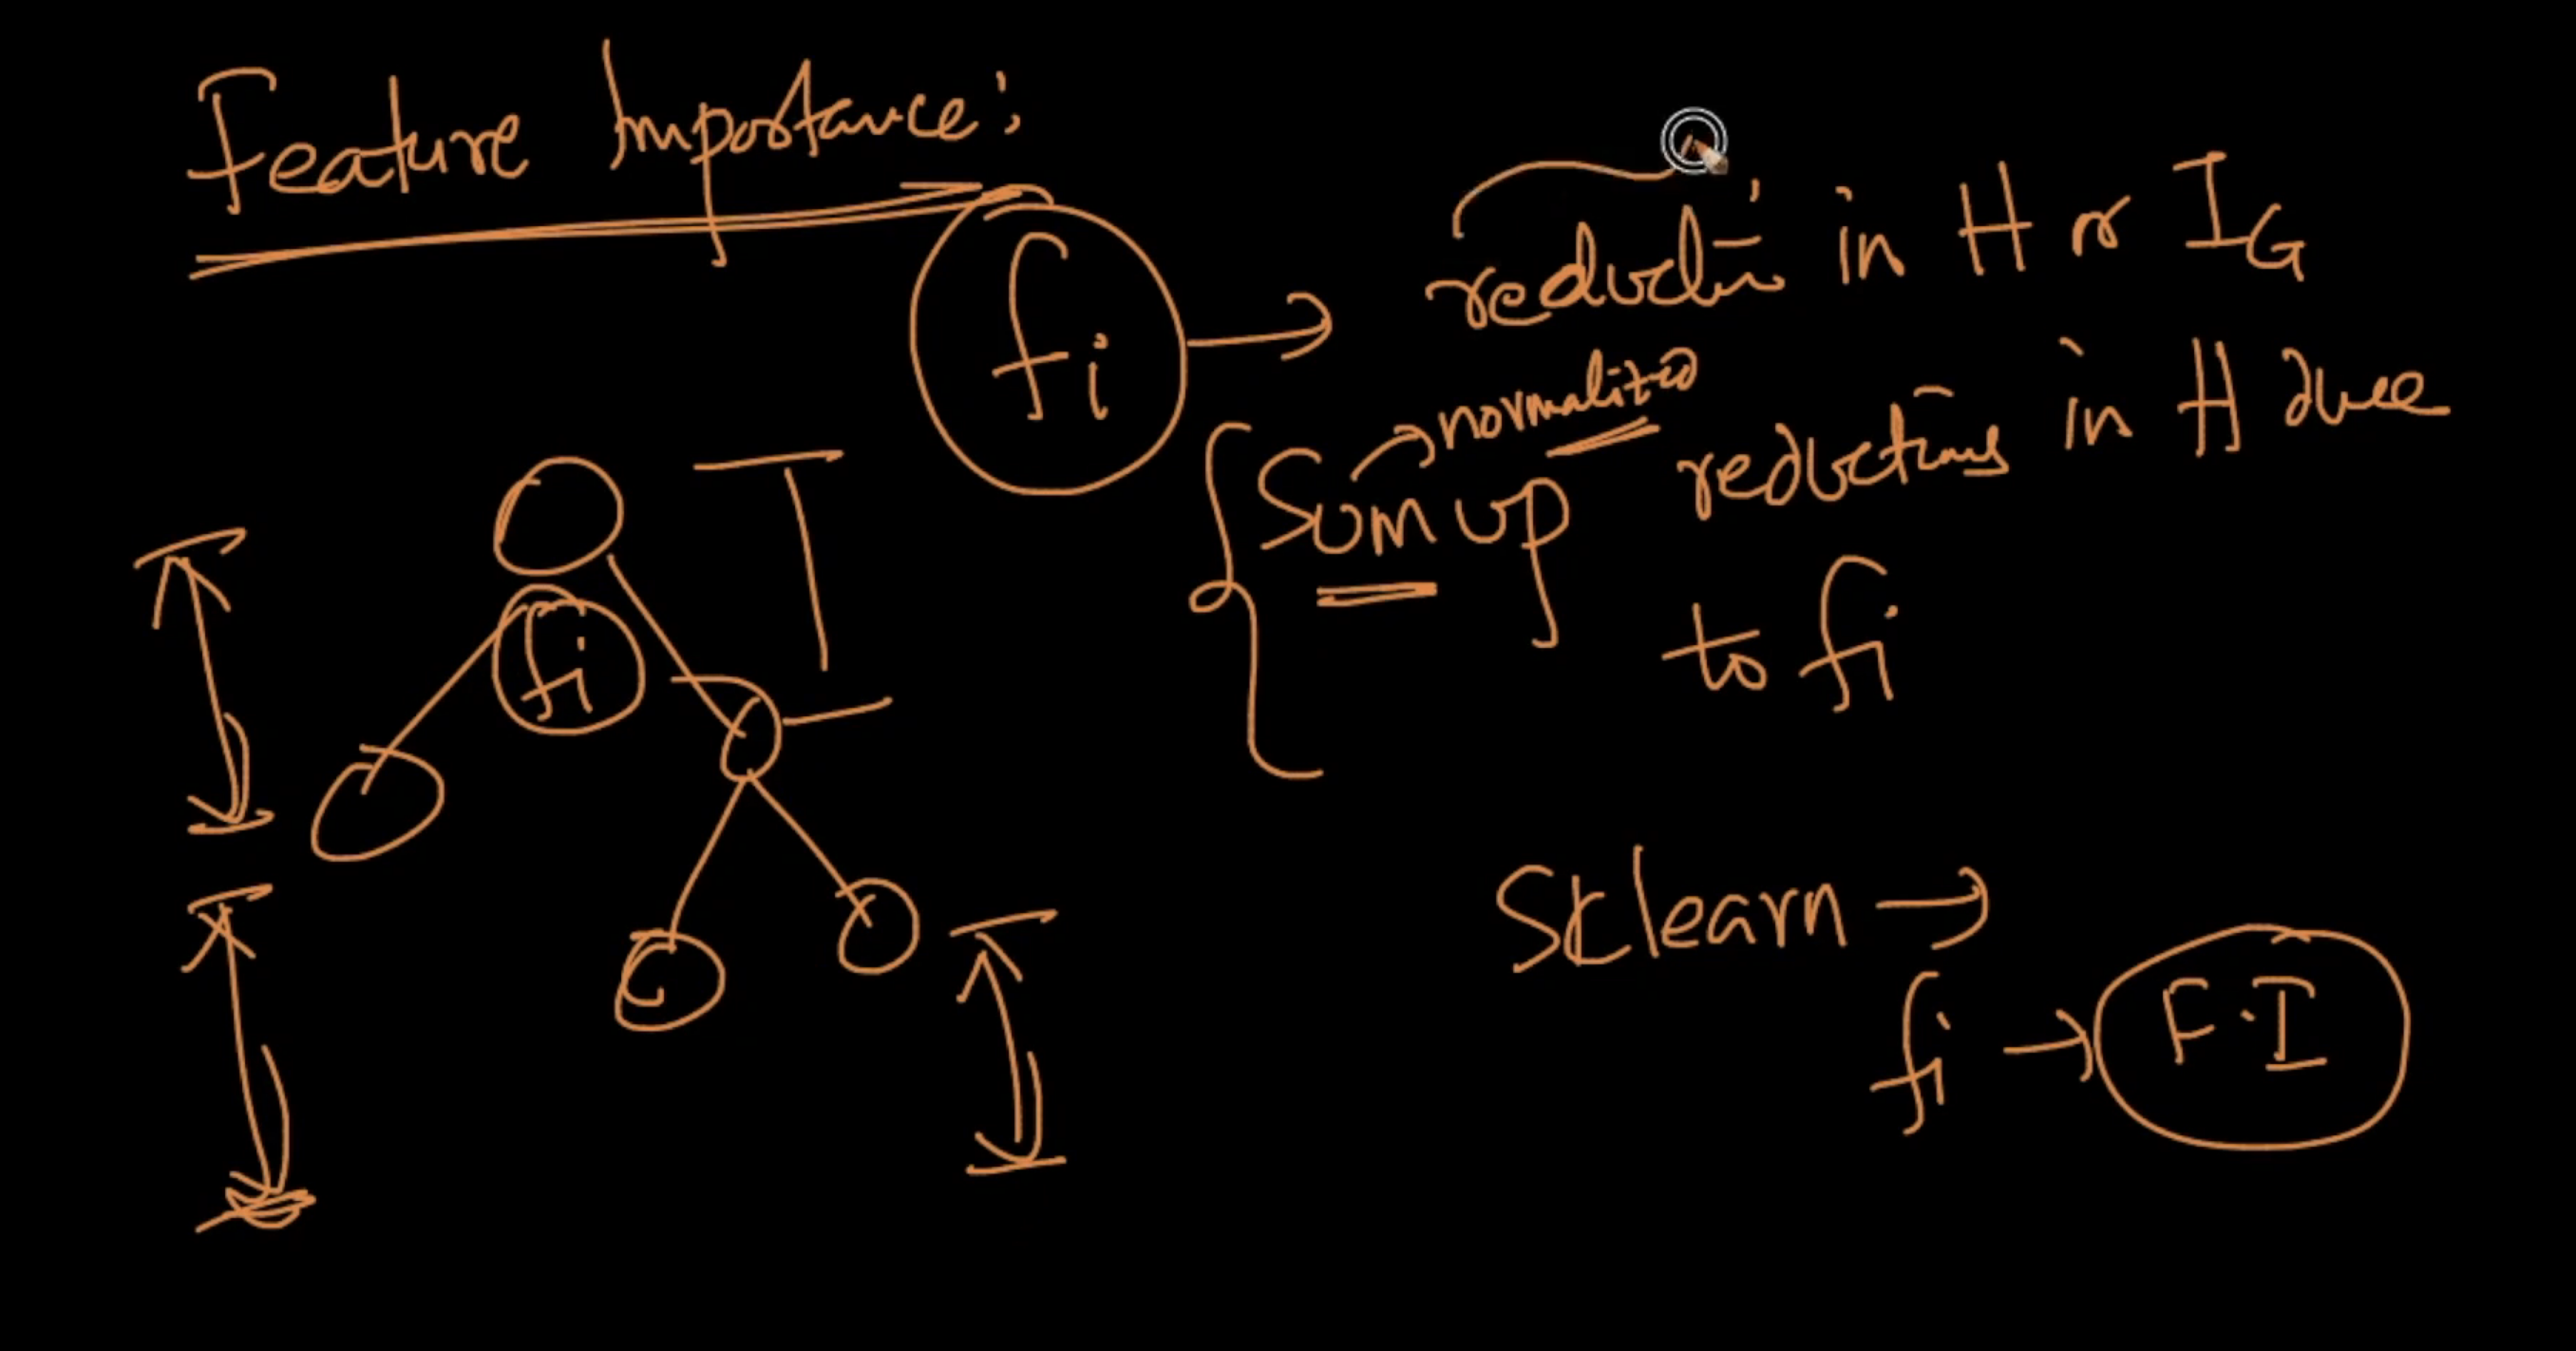 Feature Importance:
fi → reduction in H or IG
normalized
Sum up reductions in H due
to fi
fi
Sklearn →
fi → F.I